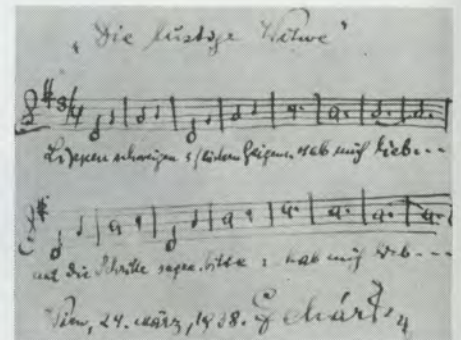 "Die lustige Witwe"
3/4
Lippen schweigen 's flüstern Geigen: Hab mich lieb...
all die Schritte sagen bitte: hab mich lieb---
Wien, 24. März, 1938. Lehár